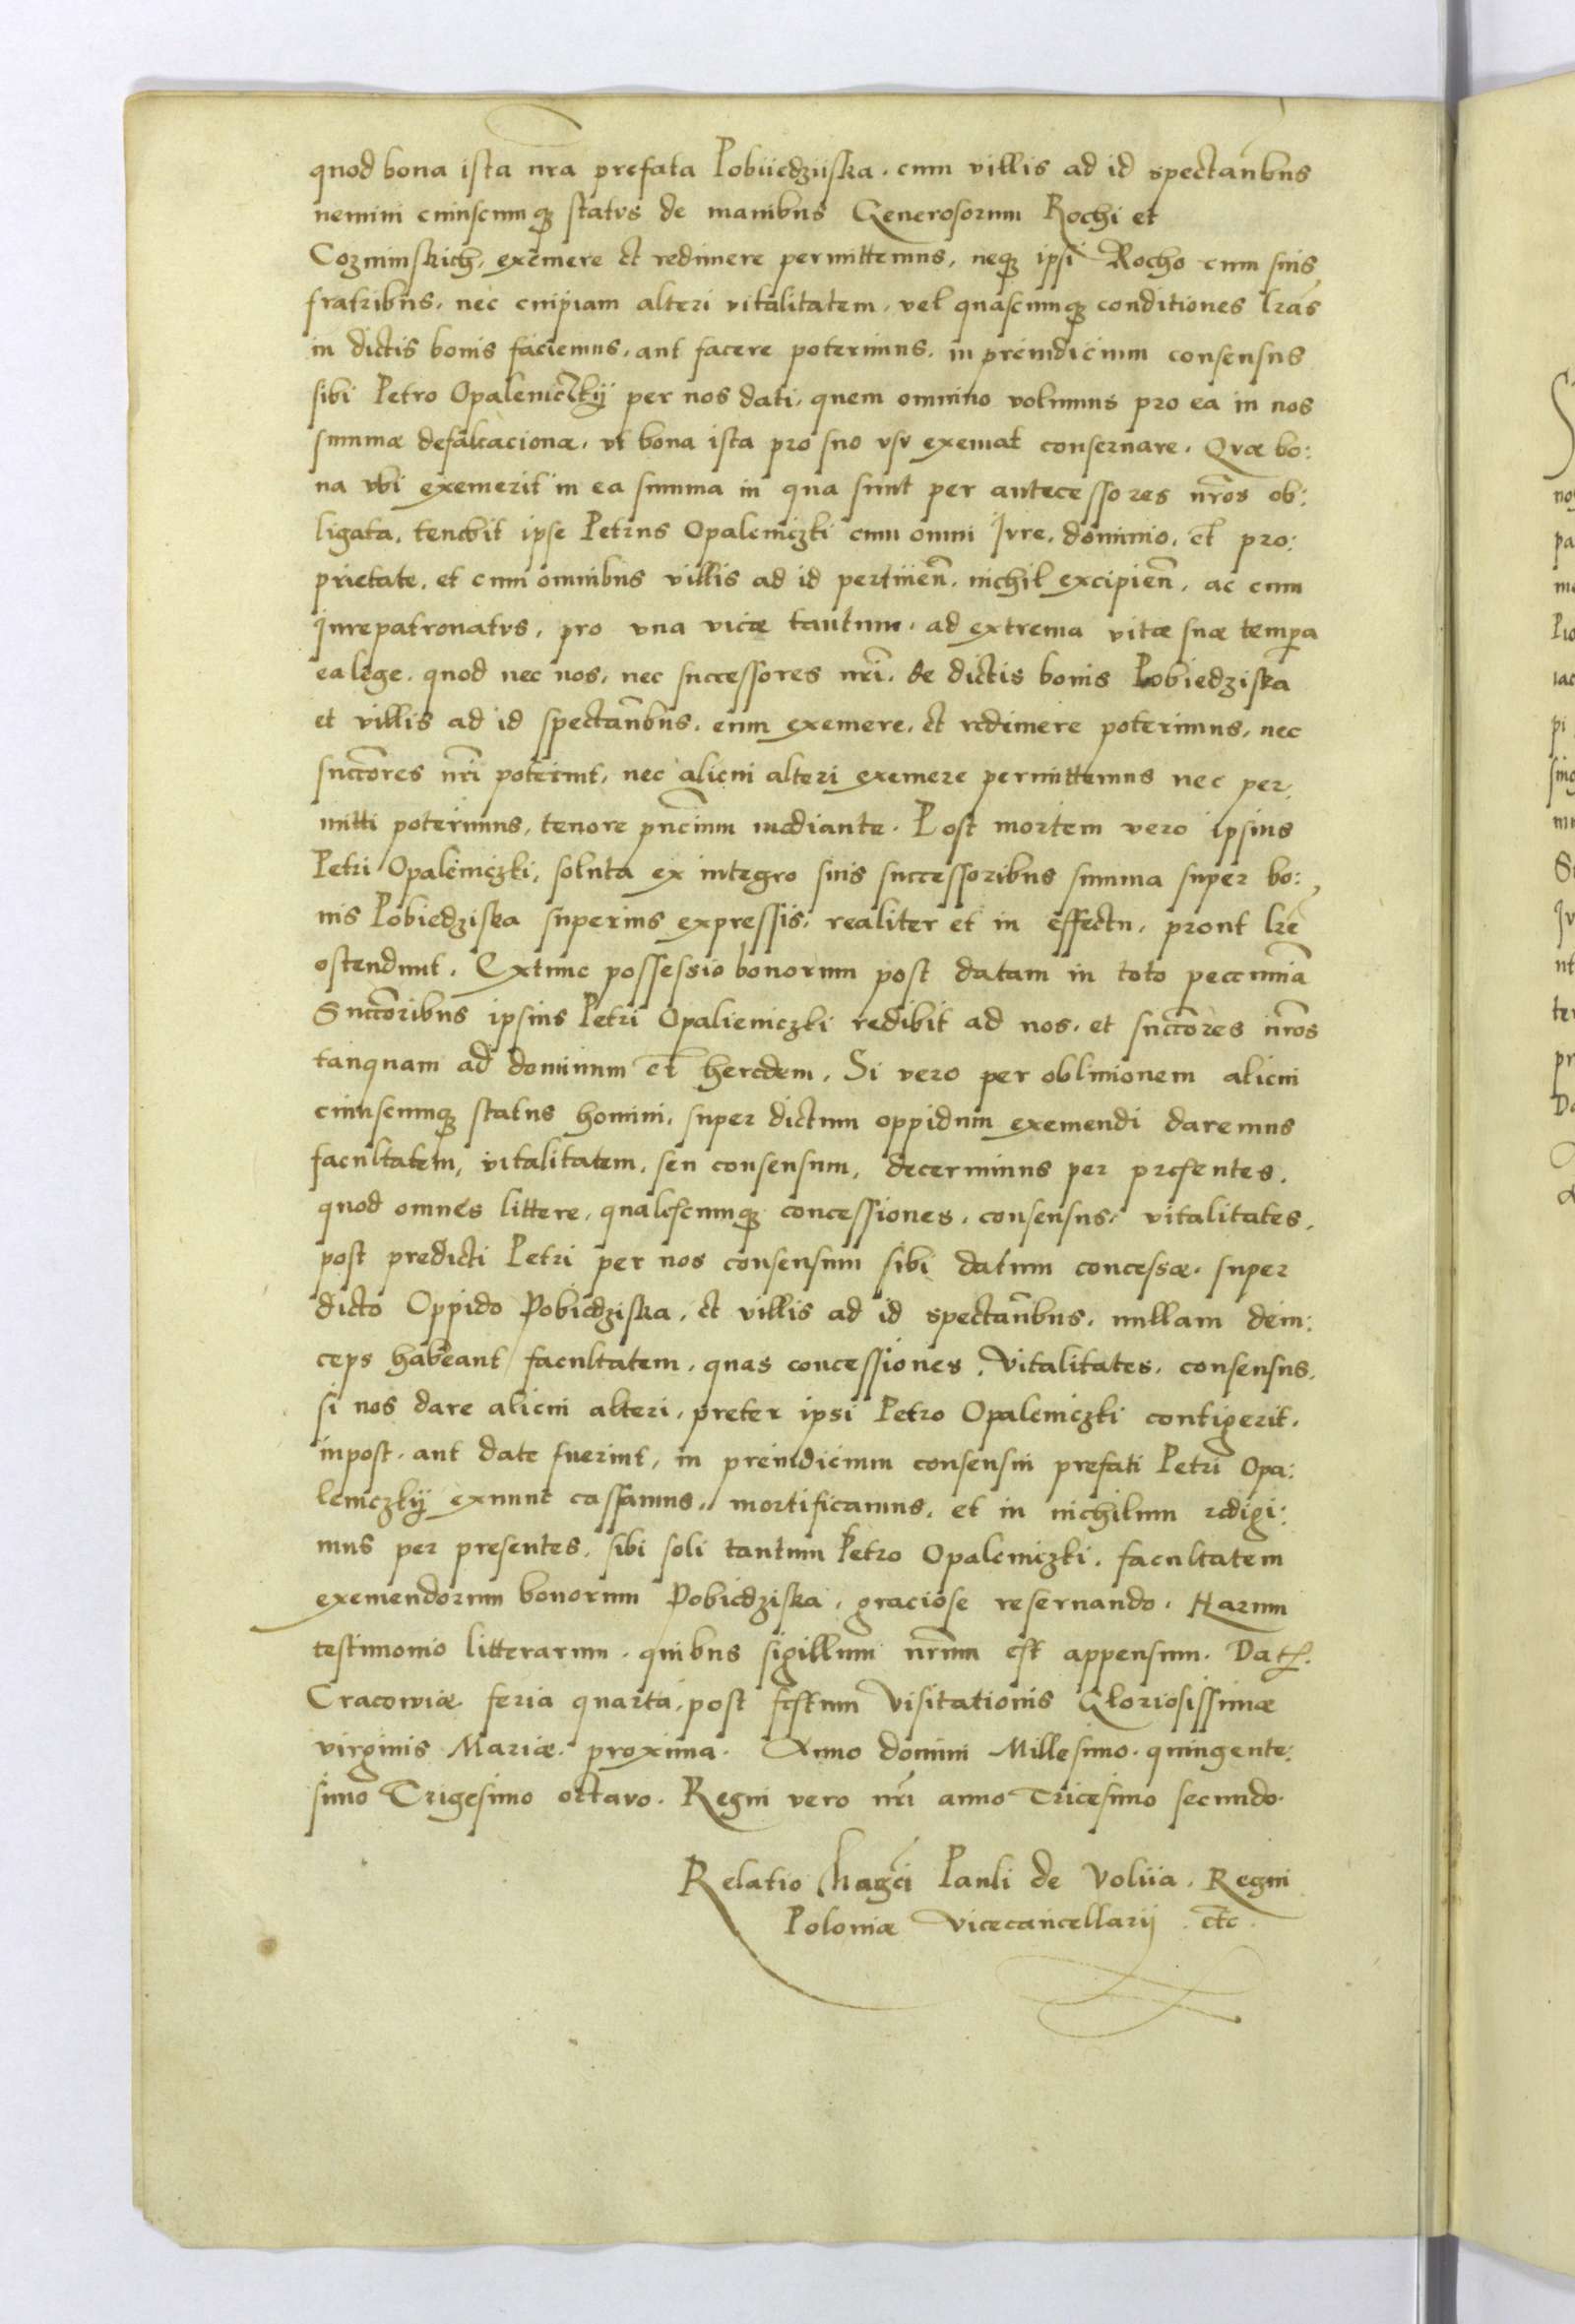 quod bona ista nra prefata Pobiiedziiska. cum villis ad id spectan̄bus
nemini cuiuscumq; status de manibus Generosorum Rochi et
Cozminskich, exemere et redimere permittemus, neq; ipsi Rocho cum suis
fratribus, nec cuipiam alteri vitalitatem, vel quascumq; conditiones l̄ras
in dictis bonis faciemus, aut facere poterimus, in preiudicium consensus
sibi Petro Opaleniczkij per nos dati, quem omnino volumus pro ea in nos
summæ defalcacionæ, vt bona ista pro suo vsv exemat conseruare. Qvæ bo:
na vbi exemerit in ea summa in qua sunt per antecessores nr̄os ob:
ligata, tenebit ipse Petrus Opaleniczki cum omni Jvre, dominio, et pro:
prietate, et cum omnibus villis ad id pertinen̄. nichil excipien̄, ac cum
Jurepatronatvs, pro vna vice tantum, ad extrema vitæ suæ tempa
ea lege, quod nec nos, nec successores nr̄i, de dictis bonis Pobiedziska
et villis ad id spectan̄bus, eum exemere, et redimere poterimus, nec
succ̄ores nr̄i poterint, nec alicui alteri exemere permittemus nec per:
mitti poterimus, tenore pn̄cium mediante. Post mortem vero ipsius
Petri Opaleniczki, soluta ex integro suis successoribus summa super bo:
nis Pobiedziska superius expressis, realiter et in effectu, prout lr̄e
ostendunt. Extunc possessio bonorum post datam in toto peccuniā
Succ̄oribus ipsius Petri Opalieniczki redibit ad nos, et succ̄ores nr̄os
tanquam ad dominum et heredem. Si vero per obliuionem alicui
cuiuscumq; status homini, super dictum oppidum exemendi daremus
facultatem, vitalitatem, seu consensum, decernimus per presentes,
quod omnes littere, qualescumq; concessiones, consensus, vitalitates,
post predicti Petri per nos consensum sibi datum concessæ, super
dicto Oppido Pobiedziska, et villis ad id spectan̄bus, nullam dein:
ceps habeant facultatem, quas concessiones, vitalitates, consensus,
si nos dare alicui alteri, preter ipsi Petro Opaleniczki contigerit,
inpost, aut date fuerint, in preiudicium consensui prefati Petri Opa:
leniczkij exnunc cassamus, mortificamus, et in nichilum redigi:
mus per presentes, sibi soli tantum Petro Opaleniczki, facultatem
exemendorum bonorum Pobiedziska, graciose reseruando. Harum
testimonio litterarum, quibus sigillum nr̄um est appensum. Dat.
Cracowiæ feria quarta, post festum Visitationis Gloriosissimæ
virginis Mariæ proxima. Anno domini Millesimo quingente:
simo Trigesimo octavo. Regni vero nr̄i anno Tricesimo secundo.
Relatio Magci Pauli de Voliia, Regni
Poloniæ Vicecancellarij etc.